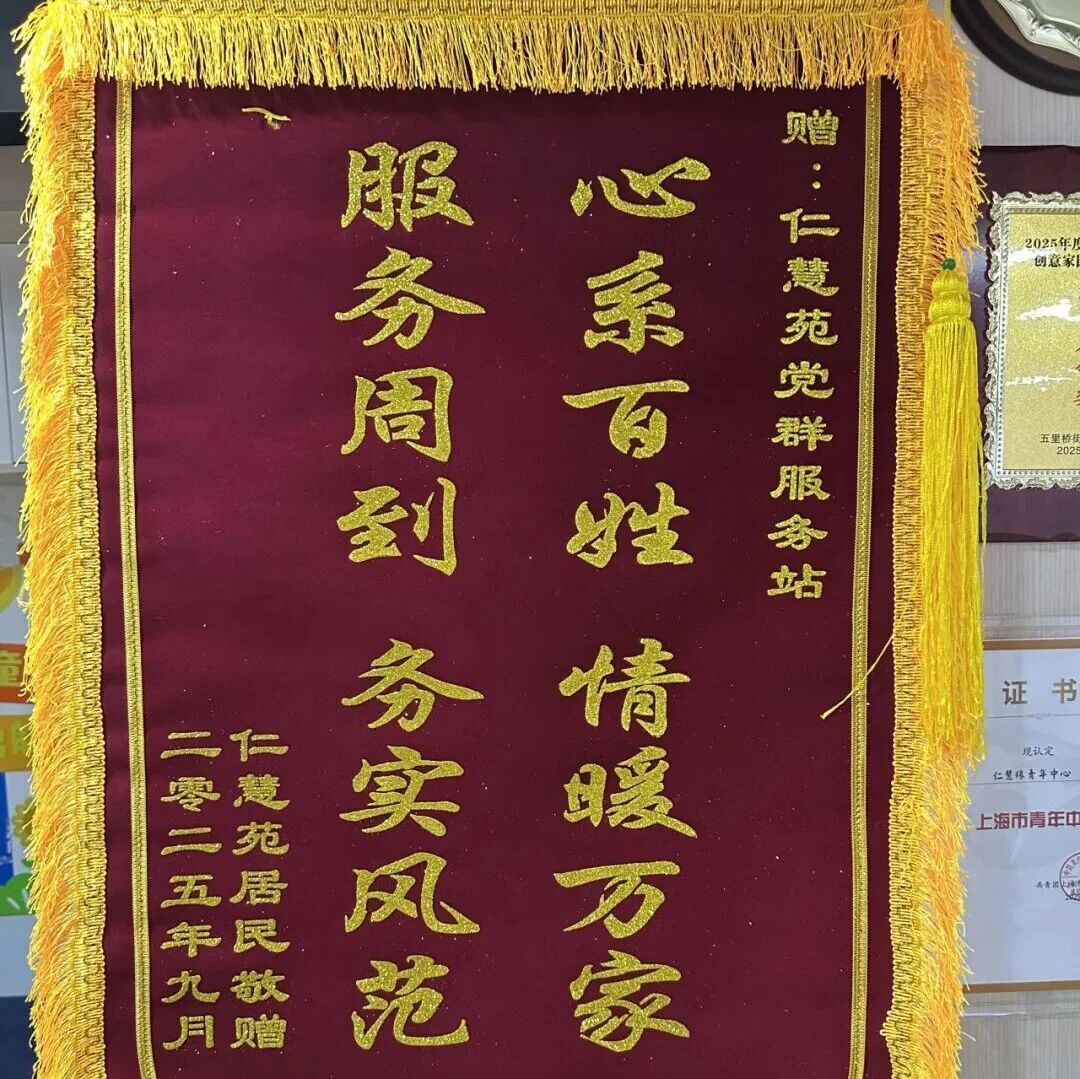 赠：仁慧苑党群服务站
心系百姓 情暖万家
服务周到 务实风范
仁慧苑居民敬赠
二零二五年九月
2025年度
创意家
五里桥街
2025
证书
现认定
仁慧缘青年中心
上海市青年中
共青团上海